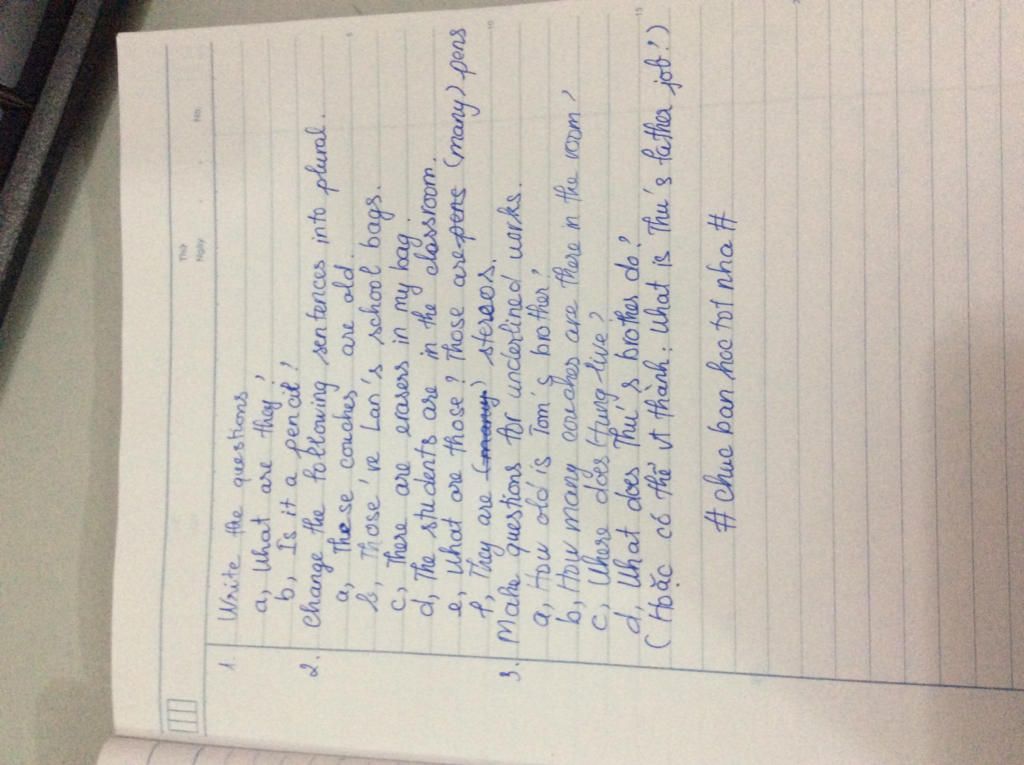 Thứ
Ngày
No.
5
10
15
1. Write the questions
a, What are they?
b, Is it a pencil?
2. Change the following sentences into plural.
a, These couches are old.
b, Those're Lan's school bags.
c, There are erasers in my bag.
d, The students are in the classroom.
e, What are those? Those are pens (many) pens
f, They are (many) stereos.
3. Make questions for underlined works.
a, How old is Tom's brother?
b, How many couches are there in the room?
c, Where does Hung live?
d, What does Thu's brother do?
(Hoặc có thể vt thành: What is Thu's father job?)
# chuc ban hoc tot nha #